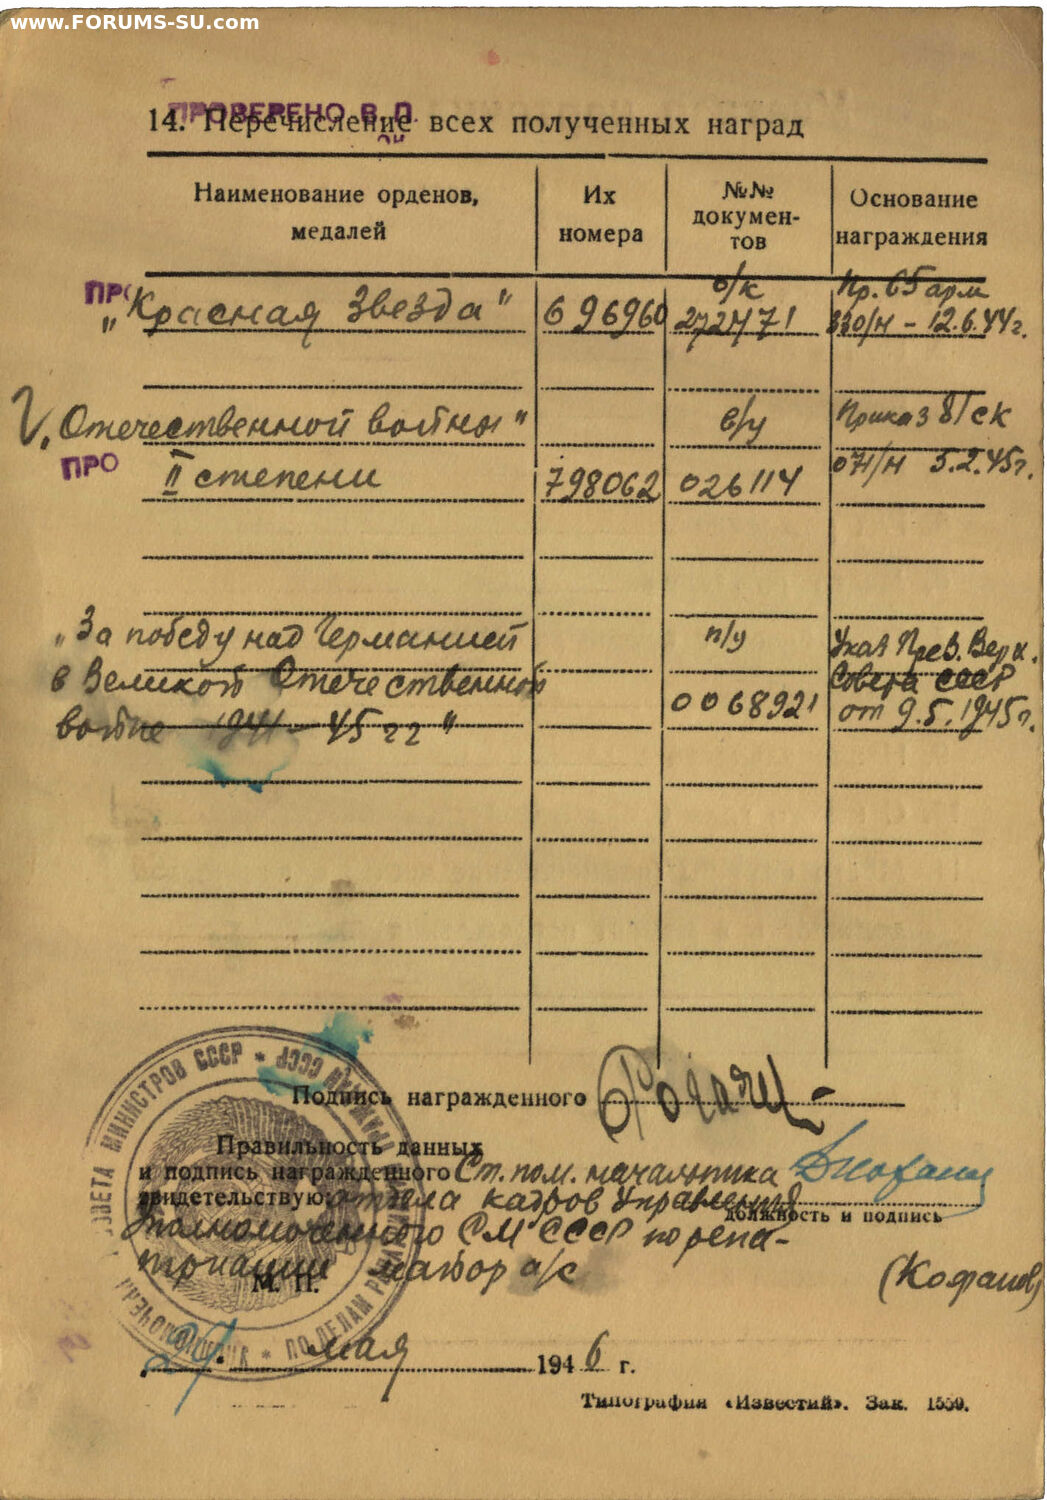 www.FORUMS-SU.com
ПРОВЕРЕНО В П.
14. Перечисление всех полученных наград
Наименование орденов, медалей
Их номера
№№ докумен-
тов
Основание награждения
ПРО
о/к
Пр. 65 арм
„Красная Звезда"
696960
272471
330/н – 12.6.44г.
V. Отечественной войны"
в/у
Приказ 8/ск
ПРО
II степени
798062
026114
071/н 5.2.45г.
„За победу над Германией
п/у
Указ През. Верх.
в Великой Отечественной
Совета СССР
войне 1941 – 45 гг"
0068921
от 9.5.1945г.
Подпись награжденного
Правильность данных
и подпись награжденного Ст. пом. начальника
свидетельствую: отдела кадров Управления
должность и подпись
Уполномоченного СМ СССР по репа-
триации майор а/с
(Кофанов)
М. П.
СОВЕТА МИНИСТРОВ СССР * УПОЛНОМОЧЕН * ПО ДЕЛАМ
27. мая 1946 г.
Типография «Известий». Зак. 1559.